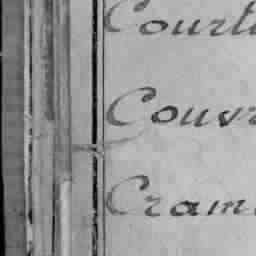 Courte
Couvr
Cram